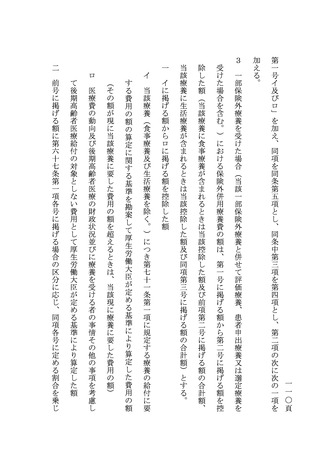 一一〇頁
第一号イ及びロ」を加え、同項を同条第五項とし、同条中第三項を第四項とし、第二項の次に次の一項を
加える。
３　一部保険外療養を受けた場合（当該一部保険外療養と併せて評価療養、患者申出療養又は選定療養を
受けた場合を含む。）における保険外併用療養費の額は、第一号に掲げる額から第二号に掲げる額を控
除した額（当該療養に食事療養が含まれるときは当該控除した額及び前項第二号に掲げる額の合計額、
当該療養に生活療養が含まれるときは当該控除した額及び同項第三号に掲げる額の合計額）とする。
一　イに掲げる額からロに掲げる額を控除した額
イ　当該療養（食事療養及び生活療養を除く。）につき第七十一条第一項に規定する療養の給付に要
する費用の額の算定に関する基準を勘案して厚生労働大臣が定める基準により算定した費用の額
（その額が現に当該療養に要した費用の額を超えるときは、当該現に療養に要した費用の額）
ロ　医療費の動向及び後期高齢者医療の財政状況並びに療養を受ける者の事情その他の事項を考慮し
て後期高齢者医療給付の対象としない費用として厚生労働大臣が定める基準により算定した額
二　前号に掲げる額に第六十七条第一項各号に掲げる場合の区分に応じ、同項各号に定める割合を乗じ